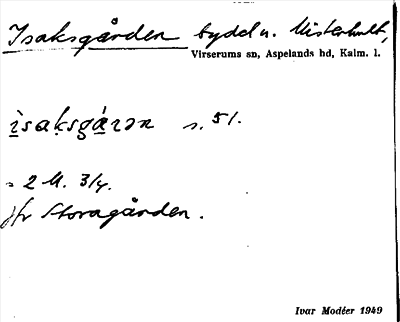 Isaksgården bydel u. Misterhult,
Virserums sn, Aspelands hd, Kalm. l.
ìsaksgá̱rən s. 51.
= 2 U. 3/4.
Jfr Storagården.
Ivar Modéer 1949